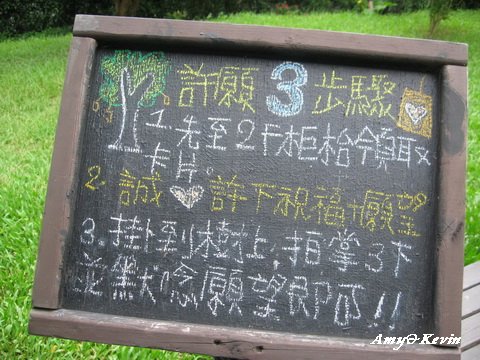 許願3步驟
1.先至2F櫃枱領取
卡片。
2.誠♡許下祝福+願望
3.掛到樹上,拍掌3下
並默唸願望即可!!
Amy∂Kevin